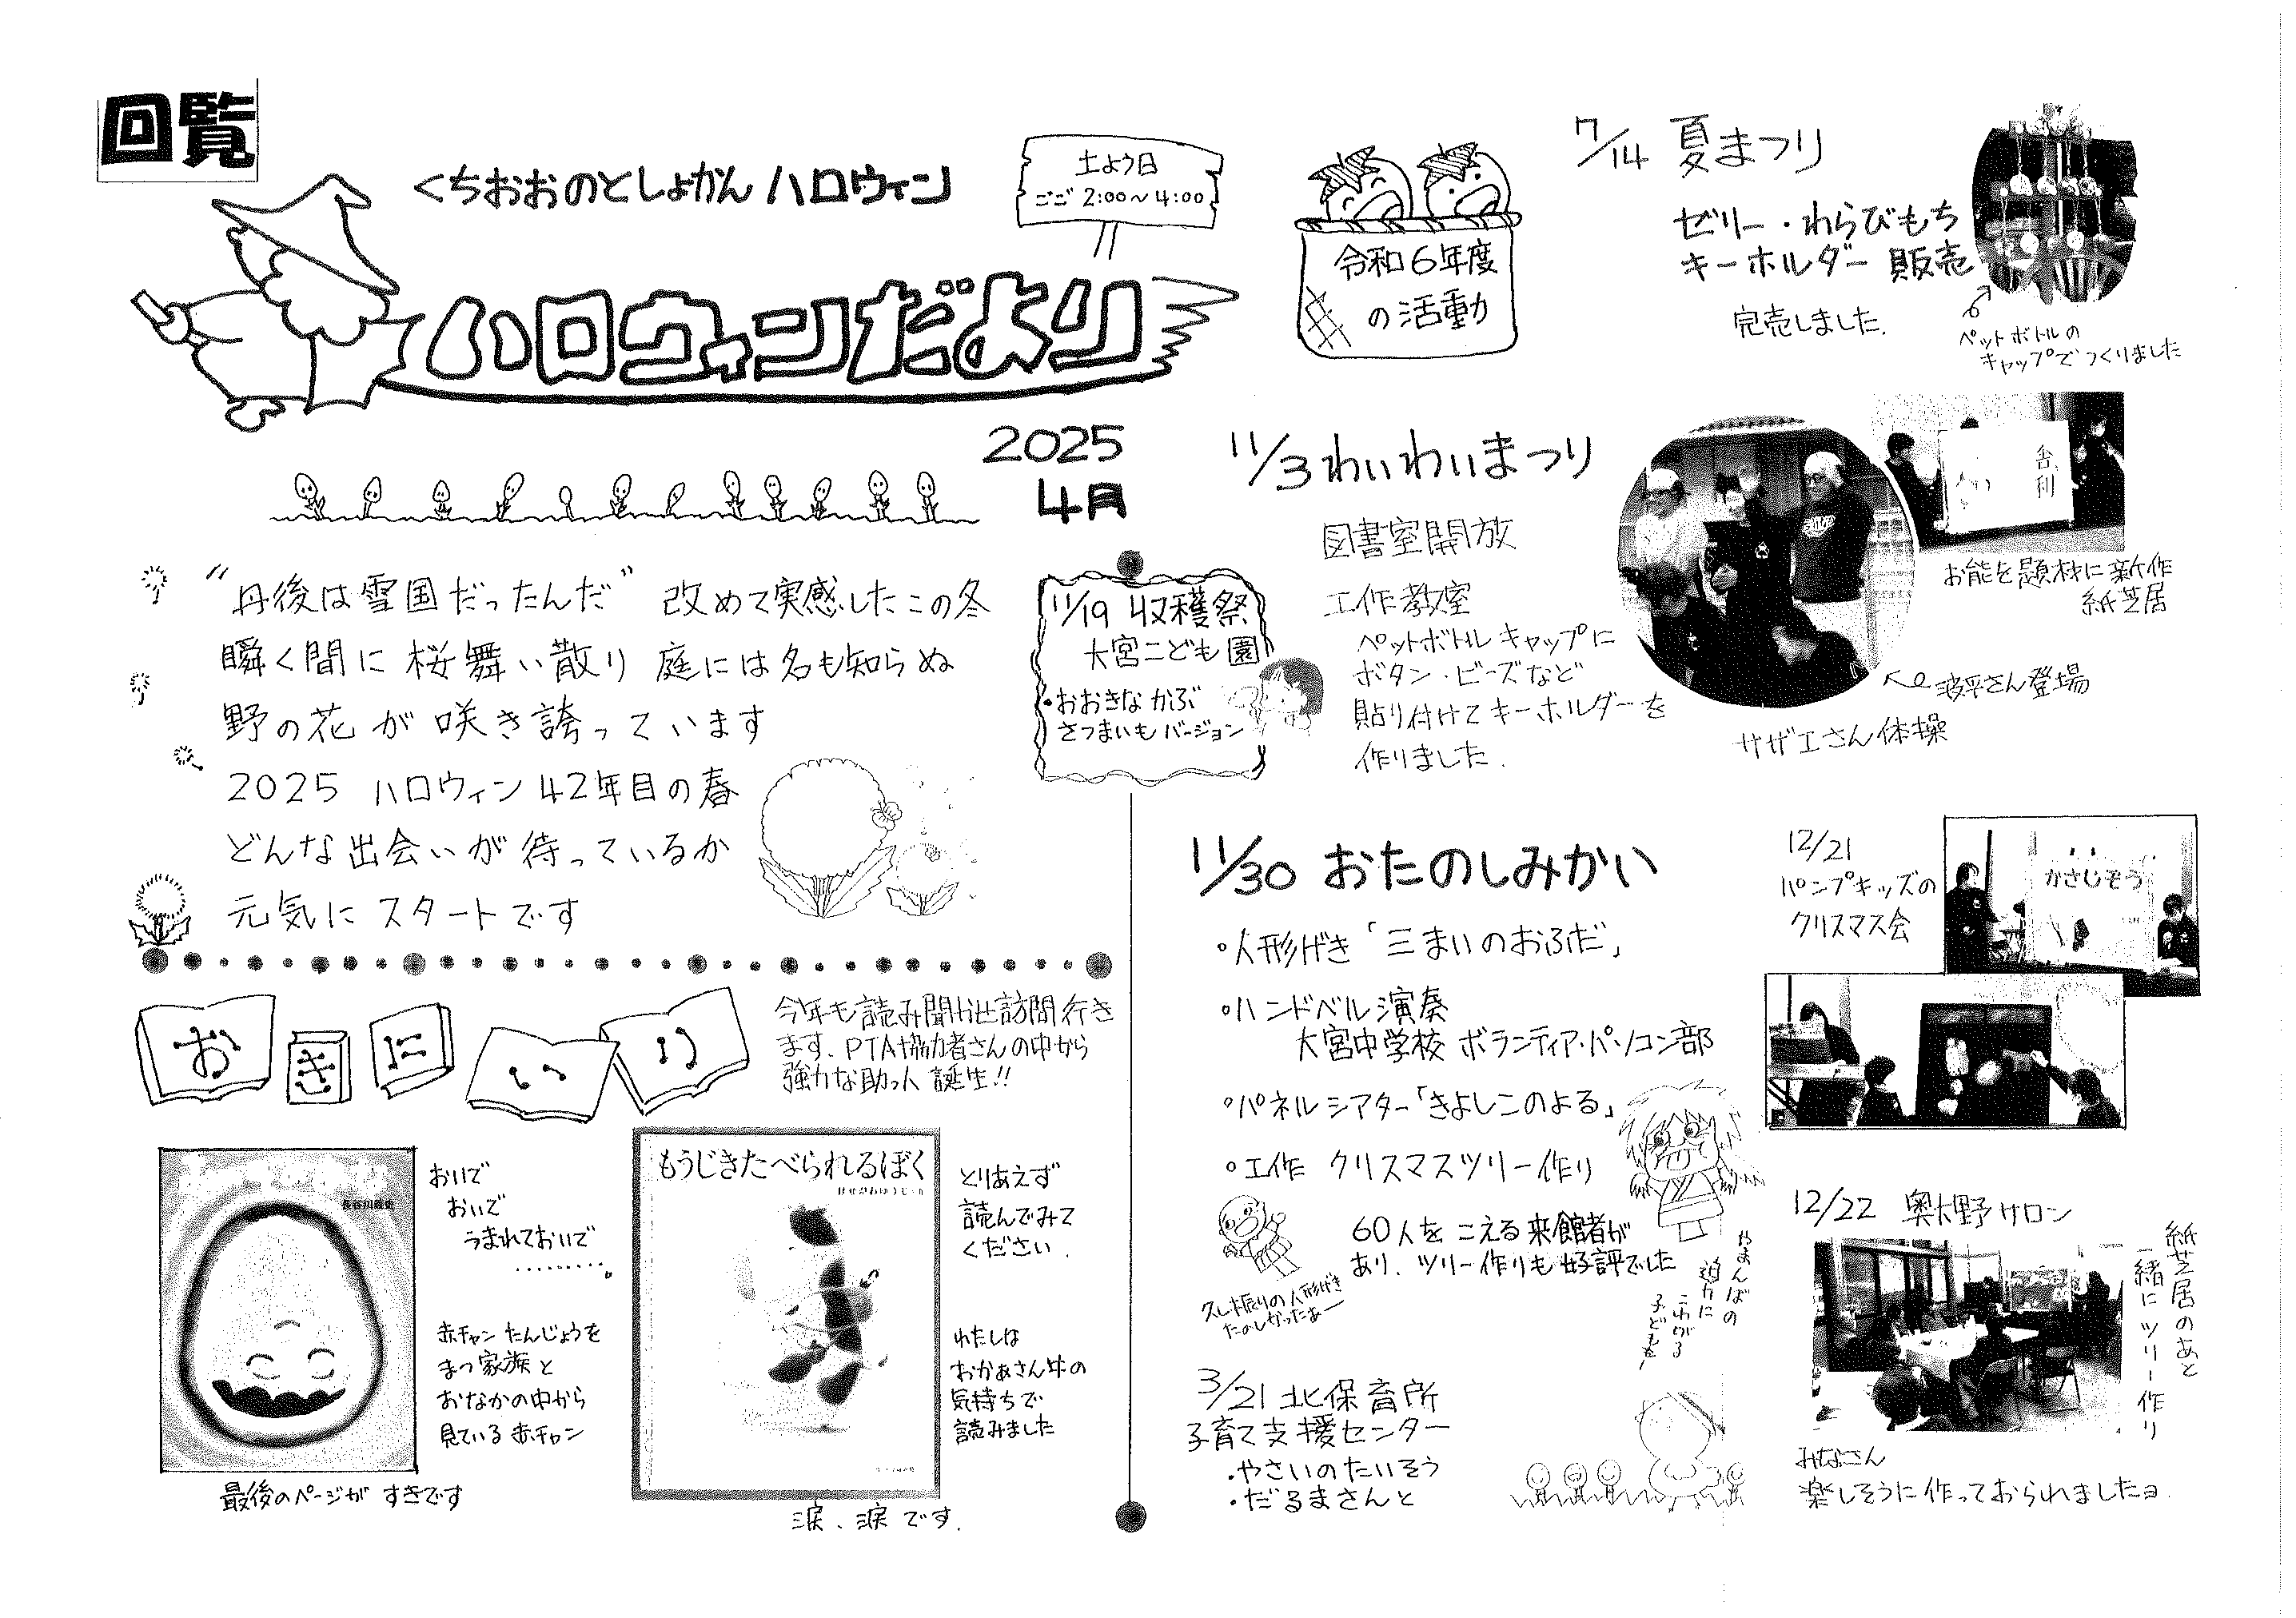 回覧
くちおおのとしょかん ハロウィン
土よう日
ごご 2:00～4:00
ハロウィンだより
2025
4月
"丹後は雪国だったんだ" 改めて実感したこの冬
瞬く間に 桜舞い散り 庭には名も知らぬ
野の花が咲き誇っています
2025 ハロウィン42年目の春
どんな出会いが待っているか
元気にスタートです
おきにいり
今年も読み聞かせ訪問行き
ます。PTA協力者さんの中から
強力な助っ人 誕生!!
長谷川義史
おいで
おいで
うまれておいで
………。
赤チャンたんじょうを
まつ家族と
おなかの中から
見ている赤チャン
最後のページがすきです
もうじきたべられるぼく
はせがわゆうじ・作
とりあえず
読んでみて
ください.
わたしは
おかあさん牛の
気持ちで
読みました
涙、涙です.
令和6年度
の活動
7/14 夏まつり
ゼリー・わらびもち
キーホルダー 販売
完売しました.
ペットボトルの
キャップでつくりました
11/3 わいわいまつり
図書室開放
工作教室
ペットボトルキャップに
ボタン・ビーズなど
貼り付けてキーホルダーを
作りました.
舎利
お能を題材に新作
紙芝居
波平さん登場
サザエさん体操
11/19 収穫祭
大宮こども園
・おおきなかぶ
さつまいもバージョン
11/30 おたのしみかい
・人形げき「三まいのおふだ」
・ハンドベル演奏
大宮中学校 ボランティア・パソコン部
・パネルシアター「きよしこのよる」
・工作 クリスマスツリー作り
60人をこえる来館者が
あり、ツリー作りも好評でした
久し振りの人形げき
たのしかったぁー
やまんばの
迫力に
こわがる
子どもも!
12/21
パンプキッズの
クリスマス会
かさじぞう
12/22 奥大野サロン
紙芝居のあと
一緒にツリー作り
みなさん
楽しそうに作っておられましたョ.
3/21 北保育所
子育て支援センター
・やさいのたいそう
・だるまさんと